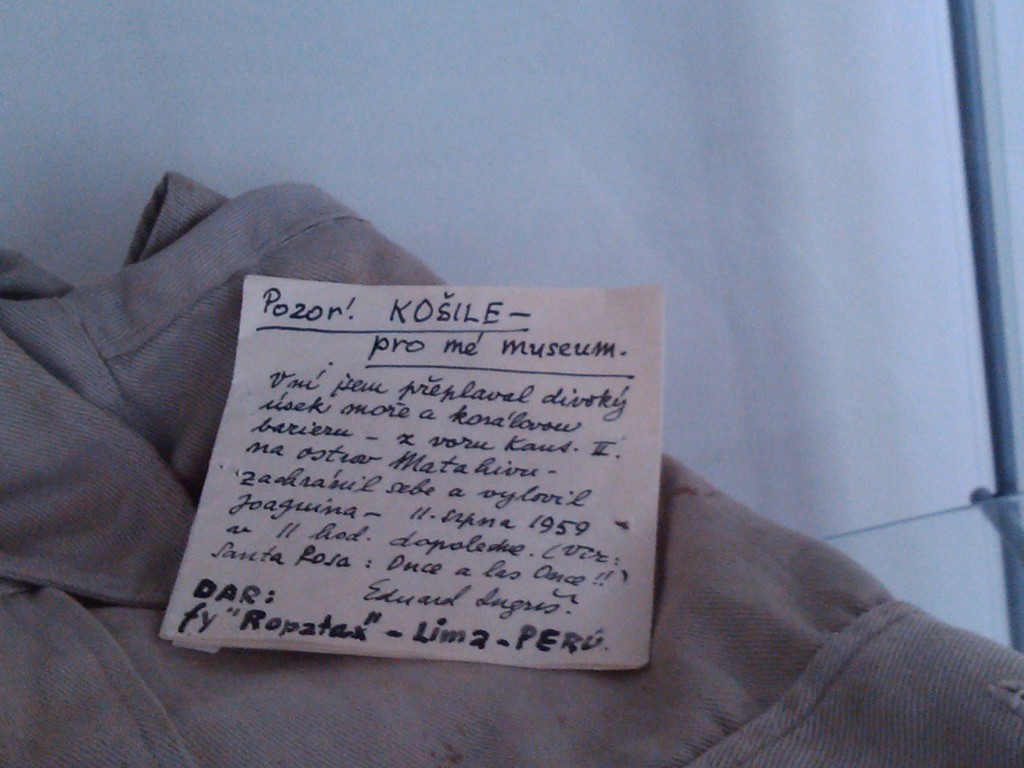 Pozor! KOŠILE –
pro mé museum.
V ní jsem přeplaval divoký
úsek moře a korálovou
barieru – z voru Kant. II.
na ostrov Matahivu –
zachránil sebe a vylovil
Joaquina – 11. srpna 1959
v 11 hod. dopoledne. (Viz:
Santa Rosa: Once a las Once!!)
Eduard Ingriš.
DAR:
fy "Ropatex" – Lima – PERÚ.